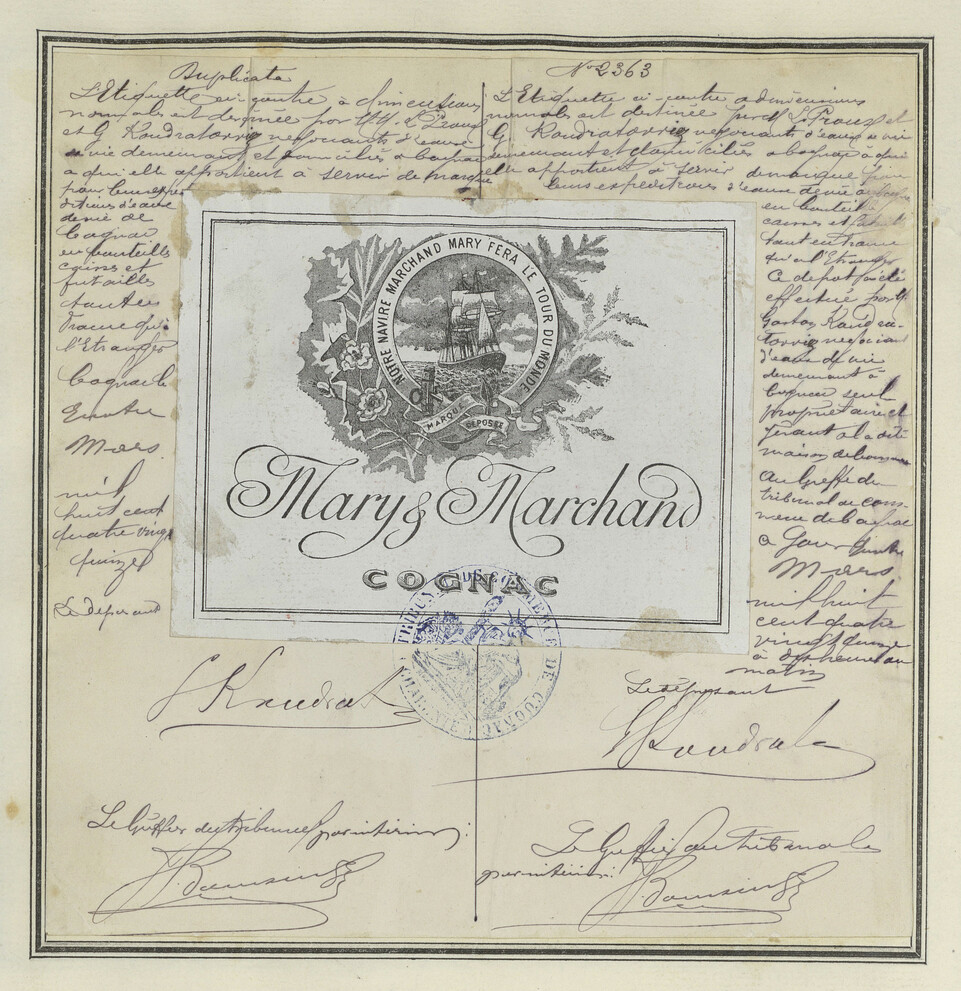 Duplicata
L'Etiquette ci contre à dimensions
normales est destinée par
et G négociants d'eaux
de vie demeurant et domiciliés à Cognac
à qui elle appartient à servir de marque
pour leurs expé
ditions d'eaux
de vie de
Cognac
en bouteilles
caisses et
futailles
tant en
France qu'à
l'Etranger
Cognac le
quatre
Mars
mil
huit cent
quatre vingt
quinze
Le déposant
N° 2363
L'Etiquette ci contre à dimensions
normales est destinée par et
G négociants d'eaux de vie
demeurant et domiciliés à Cognac à qui
elle appartient à servir de marque pour
leurs expéditions d'eaux de vie de Cognac
en bouteilles
caisses et
tant en France
qu'à l'Etranger
Ce dépôt a été
effectué par M
Gaston
négociant
d'eaux de vie
demeurant à
Cognac seul
propriétaire et
gérant de la dite
maison de commerce
Au Greffe du
tribunal de com-
merce de Cognac
à Jour quatre
Mars
mil huit
cent quatre
vingt quinze
à dix heures du
matin
Le déposant
NOTRE NAVIRE MARCHAND MARY FERA LE TOUR DU MONDE
MARQUE DÉPOSÉE
Mary & Marchand
COGNAC
TRIBUNAL DE COMMERCE DE COGNAC
CHARENTE
Le Greffier du tribunal par intérim:
Le Greffier du tribunal
par intérim: